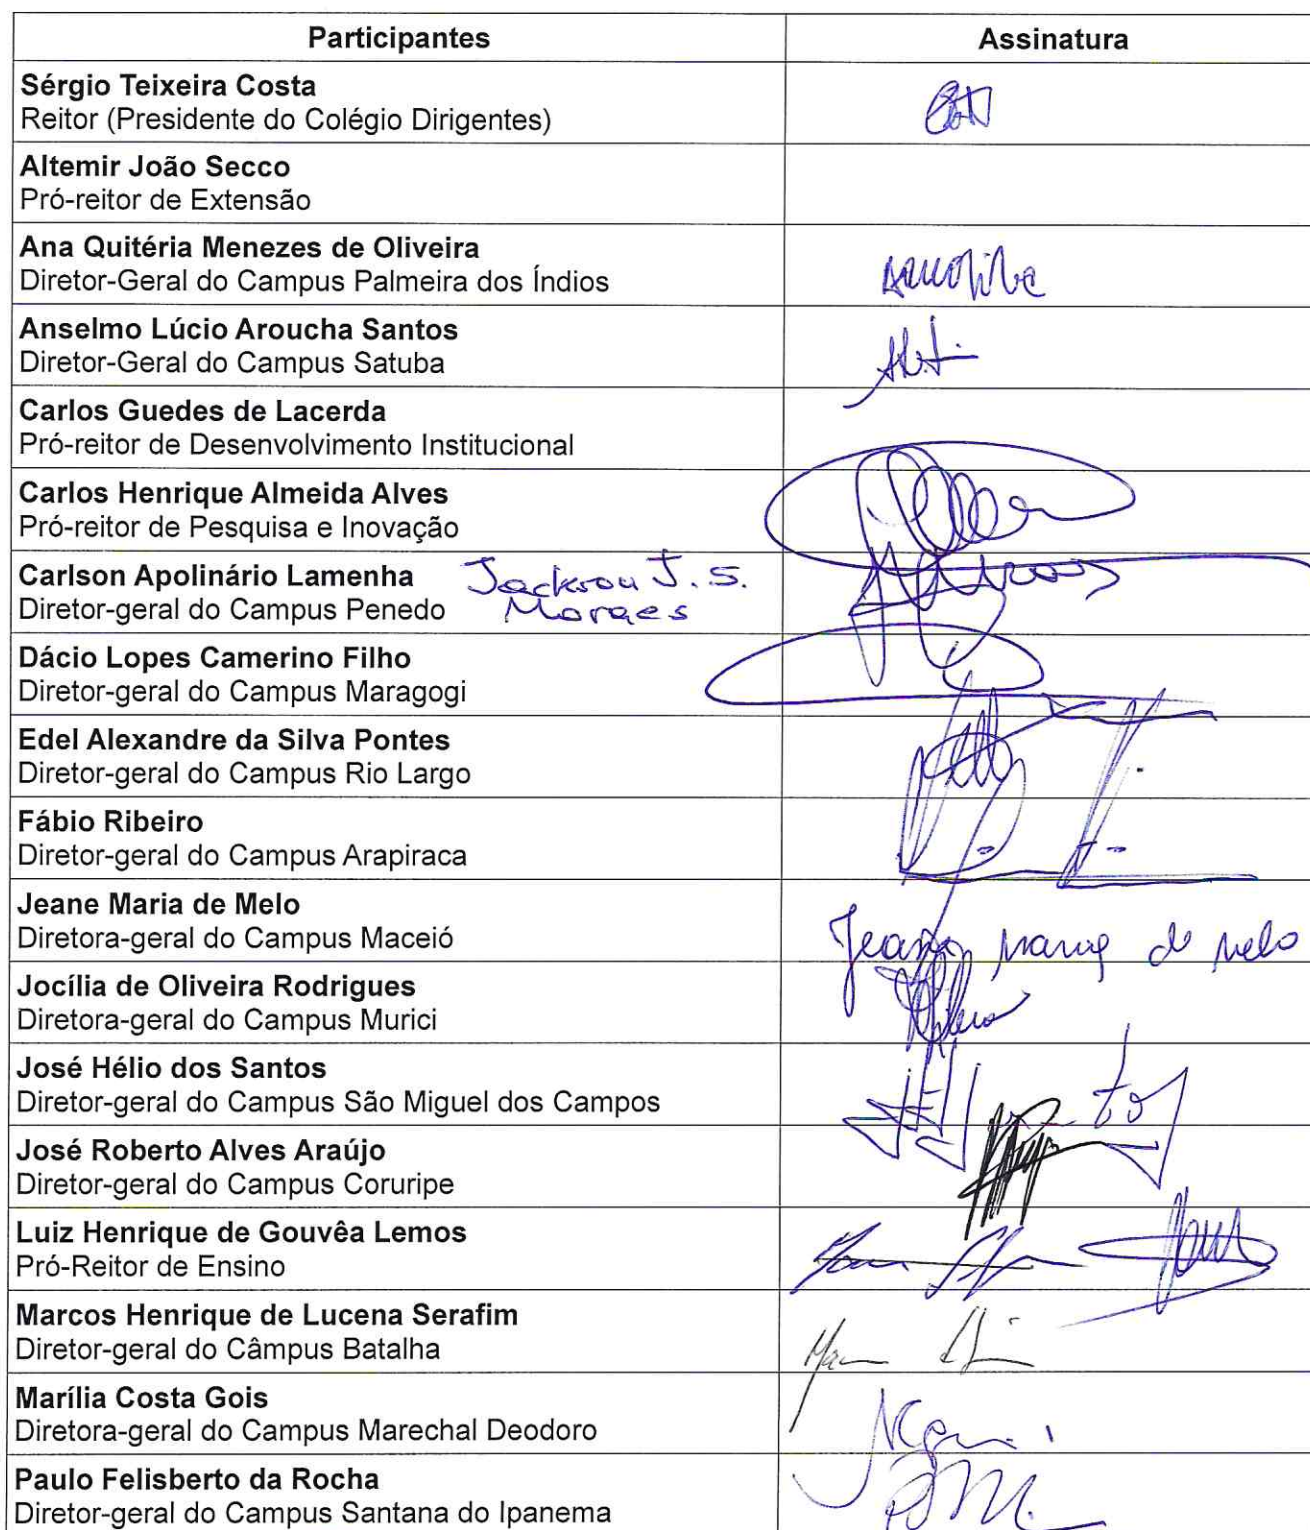 Participantes Assinatura
Sérgio Teixeira Costa
Reitor (Presidente do Colégio Dirigentes)
Altemir João Secco
Pró-reitor de Extensão
Ana Quitéria Menezes de Oliveira
Diretor-Geral do Campus Palmeira dos Índios
Anselmo Lúcio Aroucha Santos
Diretor-Geral do Campus Satuba
Carlos Guedes de Lacerda
Pró-reitor de Desenvolvimento Institucional
Carlos Henrique Almeida Alves
Pró-reitor de Pesquisa e Inovação
Carlson Apolinário Lamenha Jackson J. S.
Diretor-geral do Campus Penedo Moraes
Dácio Lopes Camerino Filho
Diretor-geral do Campus Maragogi
Edel Alexandre da Silva Pontes
Diretor-geral do Campus Rio Largo
Fábio Ribeiro
Diretor-geral do Campus Arapiraca
Jeane Maria de Melo
Diretora-geral do Campus Maceió Jeane Maria de Melo
Jocília de Oliveira Rodrigues
Diretora-geral do Campus Murici
José Hélio dos Santos
Diretor-geral do Campus São Miguel dos Campos
José Roberto Alves Araújo
Diretor-geral do Campus Coruripe
Luiz Henrique de Gouvêa Lemos
Pró-Reitor de Ensino
Marcos Henrique de Lucena Serafim
Diretor-geral do Câmpus Batalha
Marília Costa Gois
Diretora-geral do Campus Marechal Deodoro
Paulo Felisberto da Rocha
Diretor-geral do Campus Santana do Ipanema